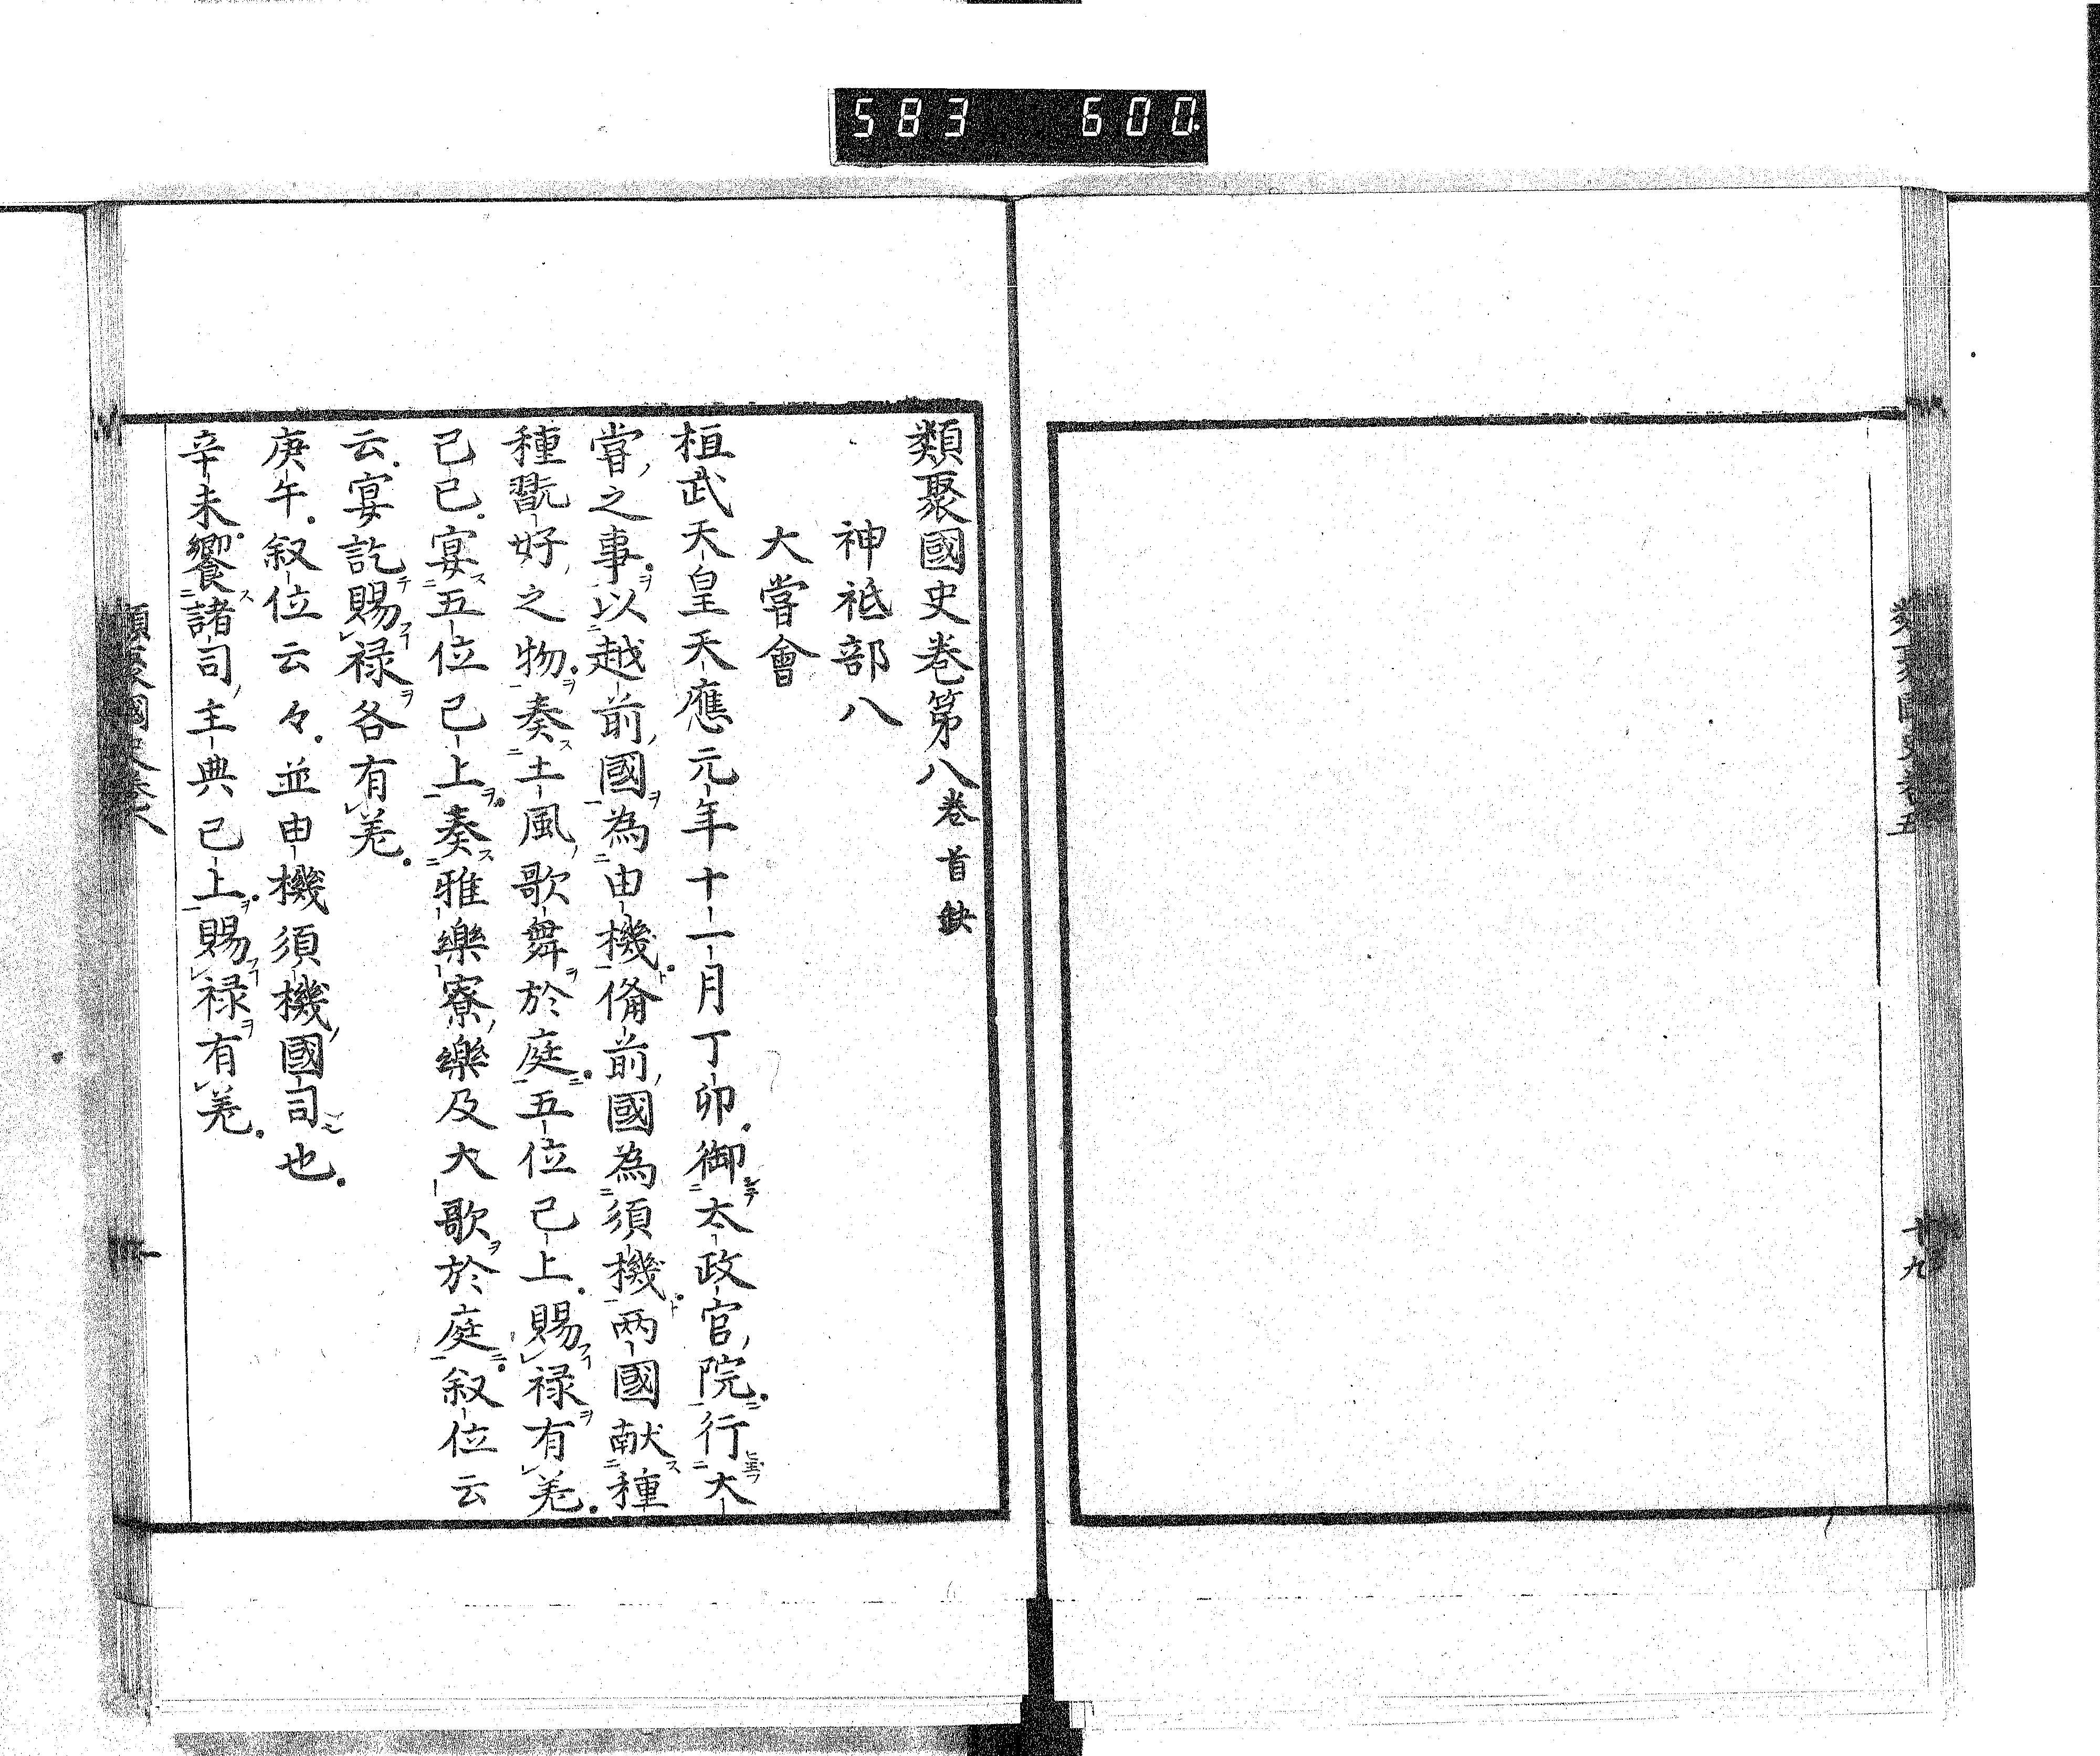 583 600
類聚國史卷五
十九
類聚國史卷第八卷首缺
神祇部八
大嘗會
桓武天皇天應元年十一月丁卯御太政官院行大
嘗之事以越前國為由機備前國為須機兩國献種
種翫好之物奏土風歌舞於庭五位已上賜祿有差
己巳宴五位已上奏雅樂寮樂及大歌於庭叙位云
云宴訖賜祿各有差
庚午叙位云々並由機須機國司也
辛未饗諸司主典已上賜祿有差
類聚國史卷八
一